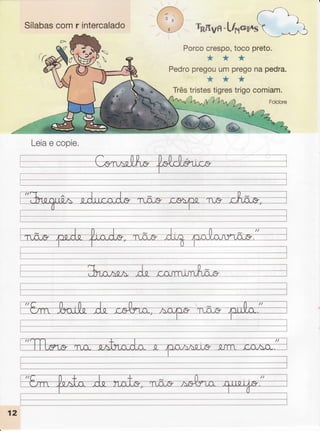 Sílabas com r intercalado
TRAVA-LÍNGUAS
Porco crespo, toco preto.
Pedro pregou um prego na pedra.
Três tristes tigres trigo comiam.
Folclore
Leia e copie.
Conselho folclórico
"Freguês educado não cospe no chão,
não pede fiado, não diz palavrão."
Frases de caminhão
"Em baile de cobra, sapo não pula."
"Moro na estrada e passeio em casa."
"Em festa de rato, não sobra queijo."
12